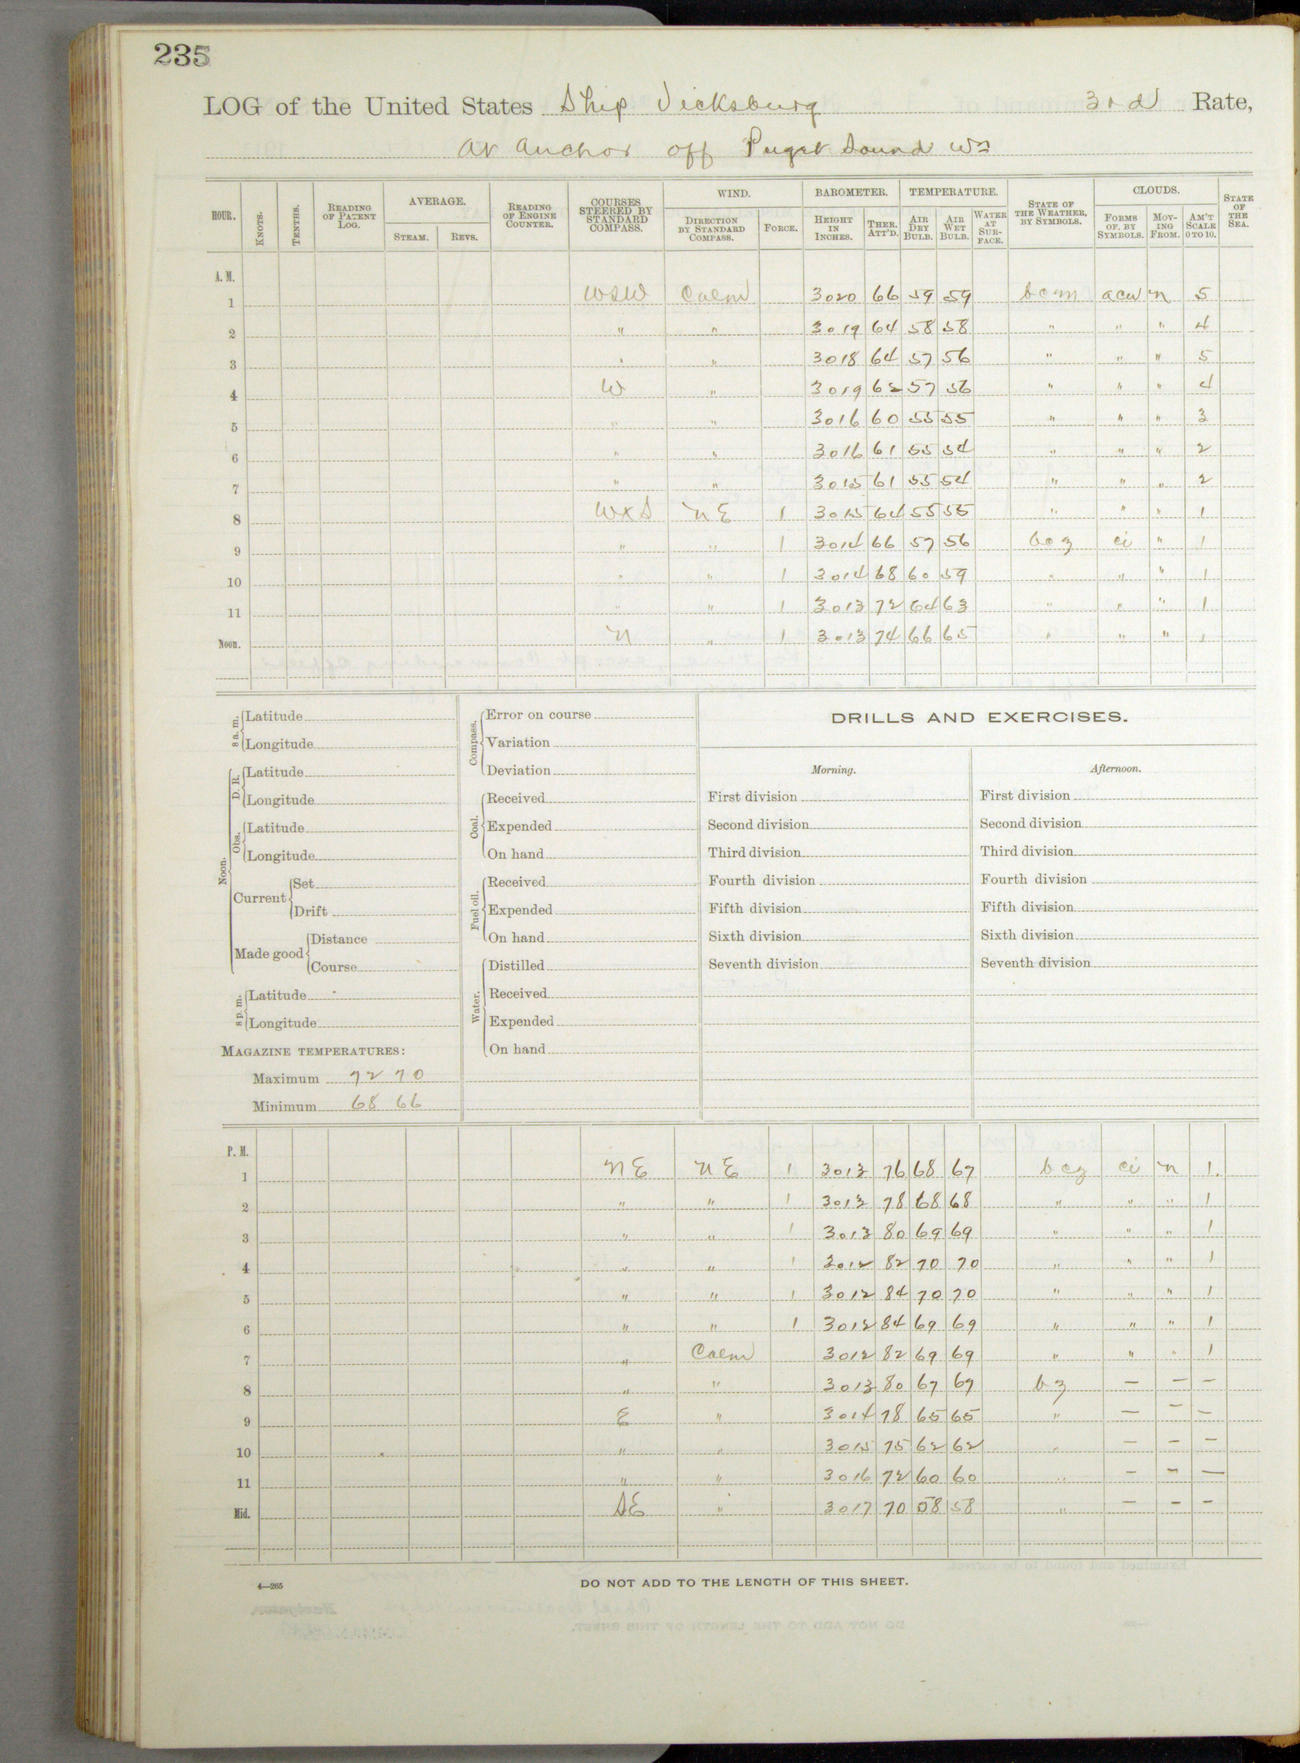 235
LOG of the United States Ship Vicksburg 3rd Rate,
At Anchor off Puget Sound Wn
HOUR. KNOTS. TENTHS. READING OF PATENT LOG. AVERAGE. STEAM. REVS. READING OF ENGINE COUNTER. COURSES STEERED BY STANDARD COMPASS. WIND. DIRECTION BY STANDARD COMPASS. FORCE. BAROMETER. HEIGHT IN INCHES. THER. ATT'D. TEMPERATURE. AIR DRY BULB. AIR WET BULB. WATER AT SURFACE. STATE OF THE WEATHER, BY SYMBOLS. CLOUDS. FORMS OF, BY SYMBOLS. MOVING FROM. AM'T SCALE 0 TO 10. STATE OF THE SEA.
A. M.
1 WSW Calm 3020 66 59 59 bcm acu n 5
2 " " 3019 64 58 58 " " " 4
3 " " 3018 64 57 56 " " " 5
4 W " 3019 62 57 56 " " " 4
5 " " 3016 60 55 55 " " " 3
6 " " 3016 61 55 54 " " " 2
7 " " 3015 61 55 54 " " " 2
8 WxS NE 1 3015 64 55 55 " " " 1
9 " " 1 3014 66 57 56 bcz ci " 1
10 " " 1 3014 68 60 59 " " " 1
11 " " 1 3013 72 64 63 " " " 1
Noon. N " 1 3013 74 66 65 " " " 1
8 a. m. Latitude
Longitude
Noon. D. R. Latitude
Longitude
Obs. Latitude
Longitude
Current Set
Drift
Made good Distance
Course
8 p. m. Latitude
Longitude
MAGAZINE TEMPERATURES:
Maximum 72 70
Minimum 68 66
Compass. Error on course
Variation
Deviation
Coal. Received
Expended
On hand
Fuel oil. Received
Expended
On hand
Water. Distilled
Received
Expended
On hand
DRILLS AND EXERCISES.
Morning. Afternoon.
First division First division
Second division Second division
Third division Third division
Fourth division Fourth division
Fifth division Fifth division
Sixth division Sixth division
Seventh division Seventh division
P. M.
1 NE NE 1 3013 76 68 67 bcz ci n 1.
2 " " 1 3013 78 68 68 " " " 1
3 " " 1 3013 80 69 69 " " " 1
4 " " 1 3012 82 70 70 " " " 1
5 " " 1 3012 84 70 70 " " " 1
6 " " 1 3012 84 69 69 " " " 1
7 " Calm 3012 82 69 69 " " " 1
8 " " 3013 80 67 67 bz — — —
9 E " 3014 78 65 65 " — — —
10 " " 3015 75 62 62 " — — —
11 " " 3016 72 60 60 " — — —
Mid. SE " 3017 70 58 58 " — — —
4—265
DO NOT ADD TO THE LENGTH OF THIS SHEET.